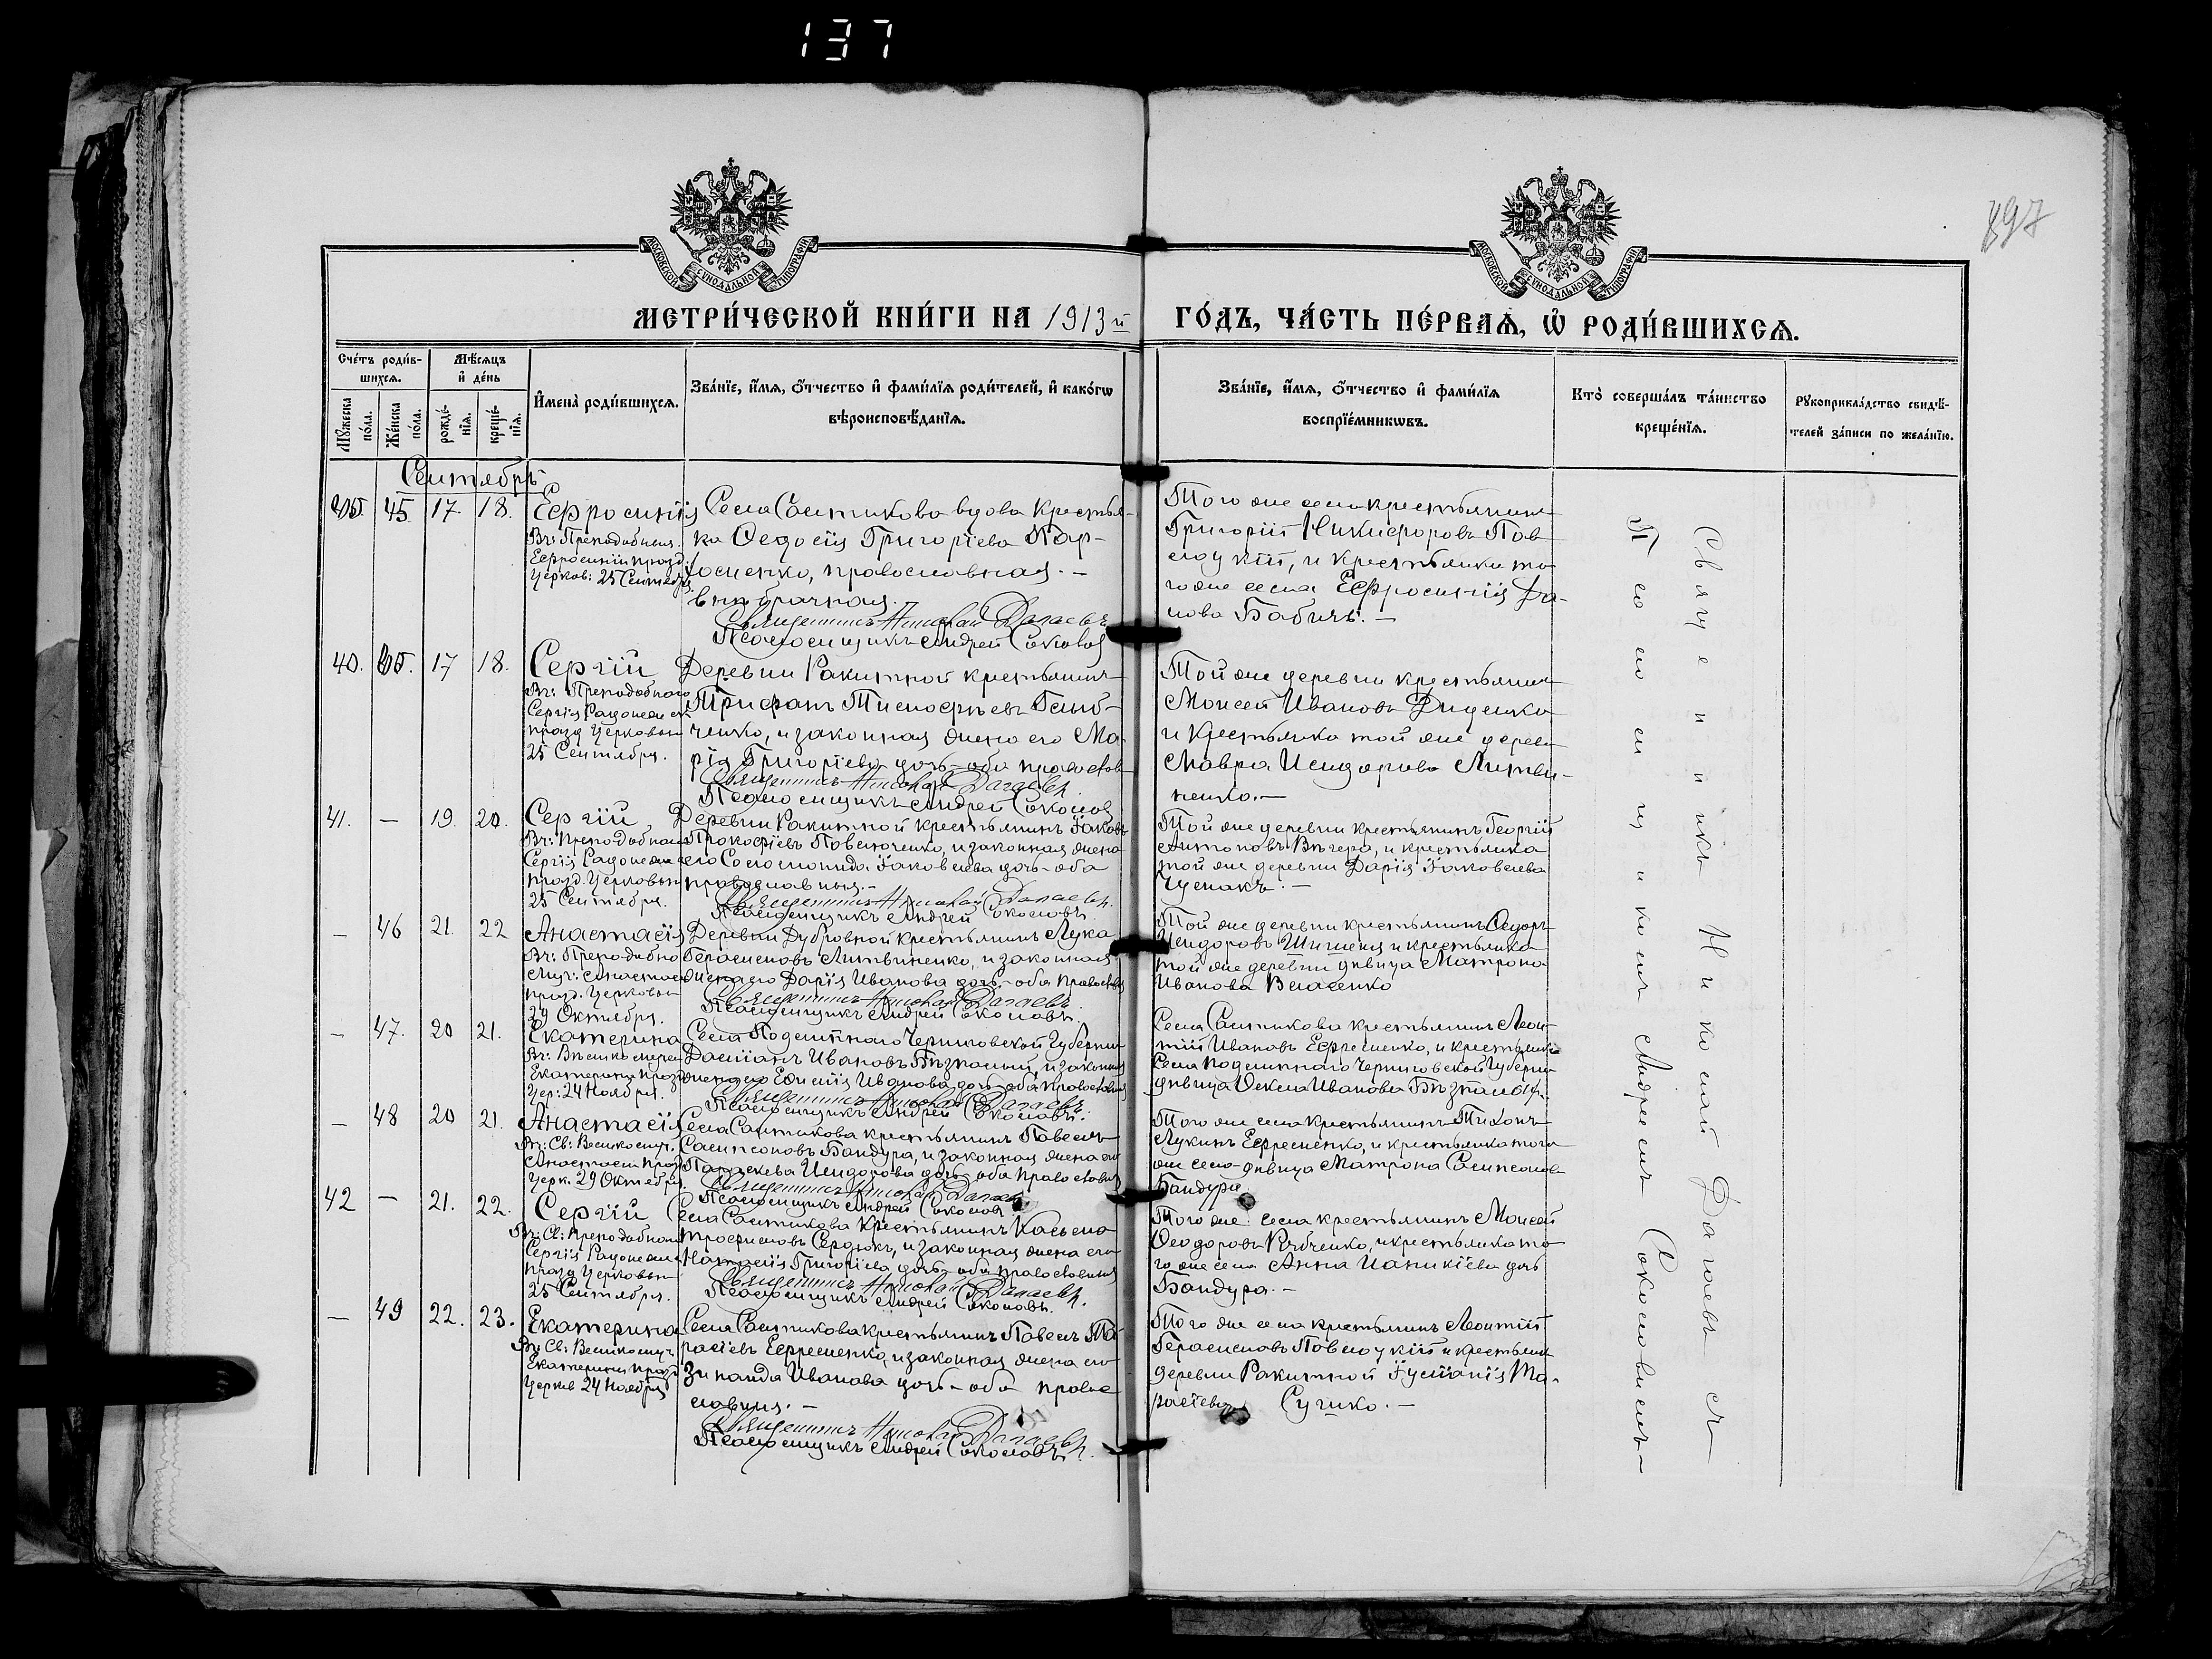 137
897
МОСКОВСКОЙ СУНОДАЛЬНОЙ ТИПОГРАФІИ
МОСКОВСКОЙ СУНОДАЛЬНОЙ ТИПОГРАФІИ
МЕТРИ́ЧЕСКОЙ КНИ́ГИ НА 1913й ГО́ДЪ, ЧА́СТЬ ПЕ́РВАѦ, Ѡ҆ РОДИ́ВШИХСѦ.
Сче́тъ роди́в-
шихсѧ.
Мꙋ́жеска по́ла.
Же́нска по́ла.
Мѣ́сѧцъ
и҆ де́нь
рожде́-
нїѧ.
креще́-
нїѧ.
И҆мена̀ роди́вшихсѧ.
Зва́нїе, и҆́мѧ, ѻ҆́тчество и҆ фами́лїѧ роди́телей, и҆ како́гѡ
вѣроисповѣ́данїѧ.
Зва́нїе, и҆́мѧ, ѻ҆́тчество и҆ фами́лїѧ
воспрїе́мникѡвъ.
Кто̀ соверша́лъ та́инство
креще́нїѧ.
Рꙋкоприкла́дство свидѣ́-
телей за́писи по жела́нїю.
Сентябрь
45. 17. 18. Ефросинія
Вч: Преподобныя
Ефросиніи празд.
Церков: 25 Сентября
Села Салтикова вдова крестья-
ка Ѳедосія Григоріева
православная. –
внѣбрачная.
Священникъ Николай Дагаевъ
Псаломщикъ Андрей Соколовъ
Того же села крестьянинъ
Григорій Никифоровъ Пов
и крестьянка то
гоже села Ефросинія
Бабичъ. –
40. 17 18. Сергій
Вч: Преподобнаго
Сергія Радонежск
празд Церковью
25 Сентября.
Деревни Ракитной крестьянинъ
Трифонъ Тимофѣевъ
ченко, и законная жена его Ма-
рія Григоріева дочь – оба православ
Священникъ Николай Дагаевъ.
Псаломщикъ Андрей Соколовъ
Той же деревни крестьянинъ
Моисей Ивановъ Диденко
и крестьянка той же деревн
Мавра Исидорова Литви-
ненко. –
41. – 19. 20. Сергій
Вч: Преподобнаго
Сергія Радонежск
празд. Церковью
25 Сентября.
Деревни Ракитной крестьянинъ Іаковъ
Прокофіевъ и законная жена
его Соломонида Іаковлева дочь – оба
православныя. –
Священникъ Николай Дагаевъ.
Псаломщикъ Андрей Соколовъ.
Той же деревни крестьянинъ Георгій
Антоновъ Вечера, и крестьянка
той же деревни Дарія Іаковлева
Чумакъ. –
– 46 21. 22 Анастасія
Вч: Преподобно
Муч: Анастасіи
празд. Церковью
29 Октября.
Деревни Дубровной крестьянинъ Лука
Герасимовъ Литвиненко, и законная
жена его Дарія Иванова дочь – оба православ
Священникъ Николай Дагаевъ
Псаломщикъ Андрей Соколовъ.
Той же деревни крестьянинъ Ѳедоръ
Исидоровъ и крестьянка
той же деревни дѣвица Матрона
Иванова Власенко
– 47. 20 21. Екатерина
Вч: Великомучен
Екатерины празд
Цер: 24 Ноября.
Села Черниговской Губерніи
Даміанъ Ивановъ и законная
жена его Евфимія Иванова дочь – оба православныя
Священникъ Николай Дагаевъ
Псаломщикъ Андрей Соколовъ.
Села Салтикова крестьянинъ Леон-
тій Ивановъ Ефременко, и крестьянка
села Черниговской Губерніи
дѣвица Ѳекла Иванова
– 48 20 21. Анастасія
Вч: Св: Великомуч.
Анастасіи празд
Церк. 29 Октября.
Села Салтикова крестьянинъ Павелъ
Сампсоновъ Бандура, и законная жена его
Параскева Исидорова дочь – оба православныя
Священникъ Николай Дагаевъ
Псаломщикъ Андрей Соколовъ
Того же села крестьянинъ Тихонъ
Лукинъ Ефременко, и крестьянка того
же села – дѣвица Матрона Сампсонова
Бандура.
42 – 21. 22. Сергій
Вч: Св: Преподобнаго
Сергія Радонежск
празд Церковью
25 Сентября.
Села Салтикова крестьянинъ Касьянъ
Трофимовъ Сердюкъ, и законная жена его
Наталія Григоріева дочь – оба православныя
Священникъ Николай Дагаевъ.
Псаломщикъ Андрей Соколовъ.
Того же села крестьянинъ Моисей
Ѳеодоровъ Рябченко, и крестьянка то
го же села Анна Іаникіева дочь
Бандура. –
– 49 22. 23. Екатерина
Вч: Св: Великомуч
Екатерины празд
Церков 24 Ноября
Села Салтикова крестьянинъ Павелъ Та-
расіевъ Ефременко, и законная жена его
Зинаида Иванова дочь – оба право
славныя. –
Священникъ Николай Дагаевъ
Псаломщикъ Андрей Соколовъ.
Того же села крестьянинъ Леонтій
Герасимовъ и крестьянка
деревни Ракитной Іуліанія Та-
расіева Сушко. –
Священникъ Николай Дагаевъ съ
Псаломщикомъ Андреемъ Соколовымъ